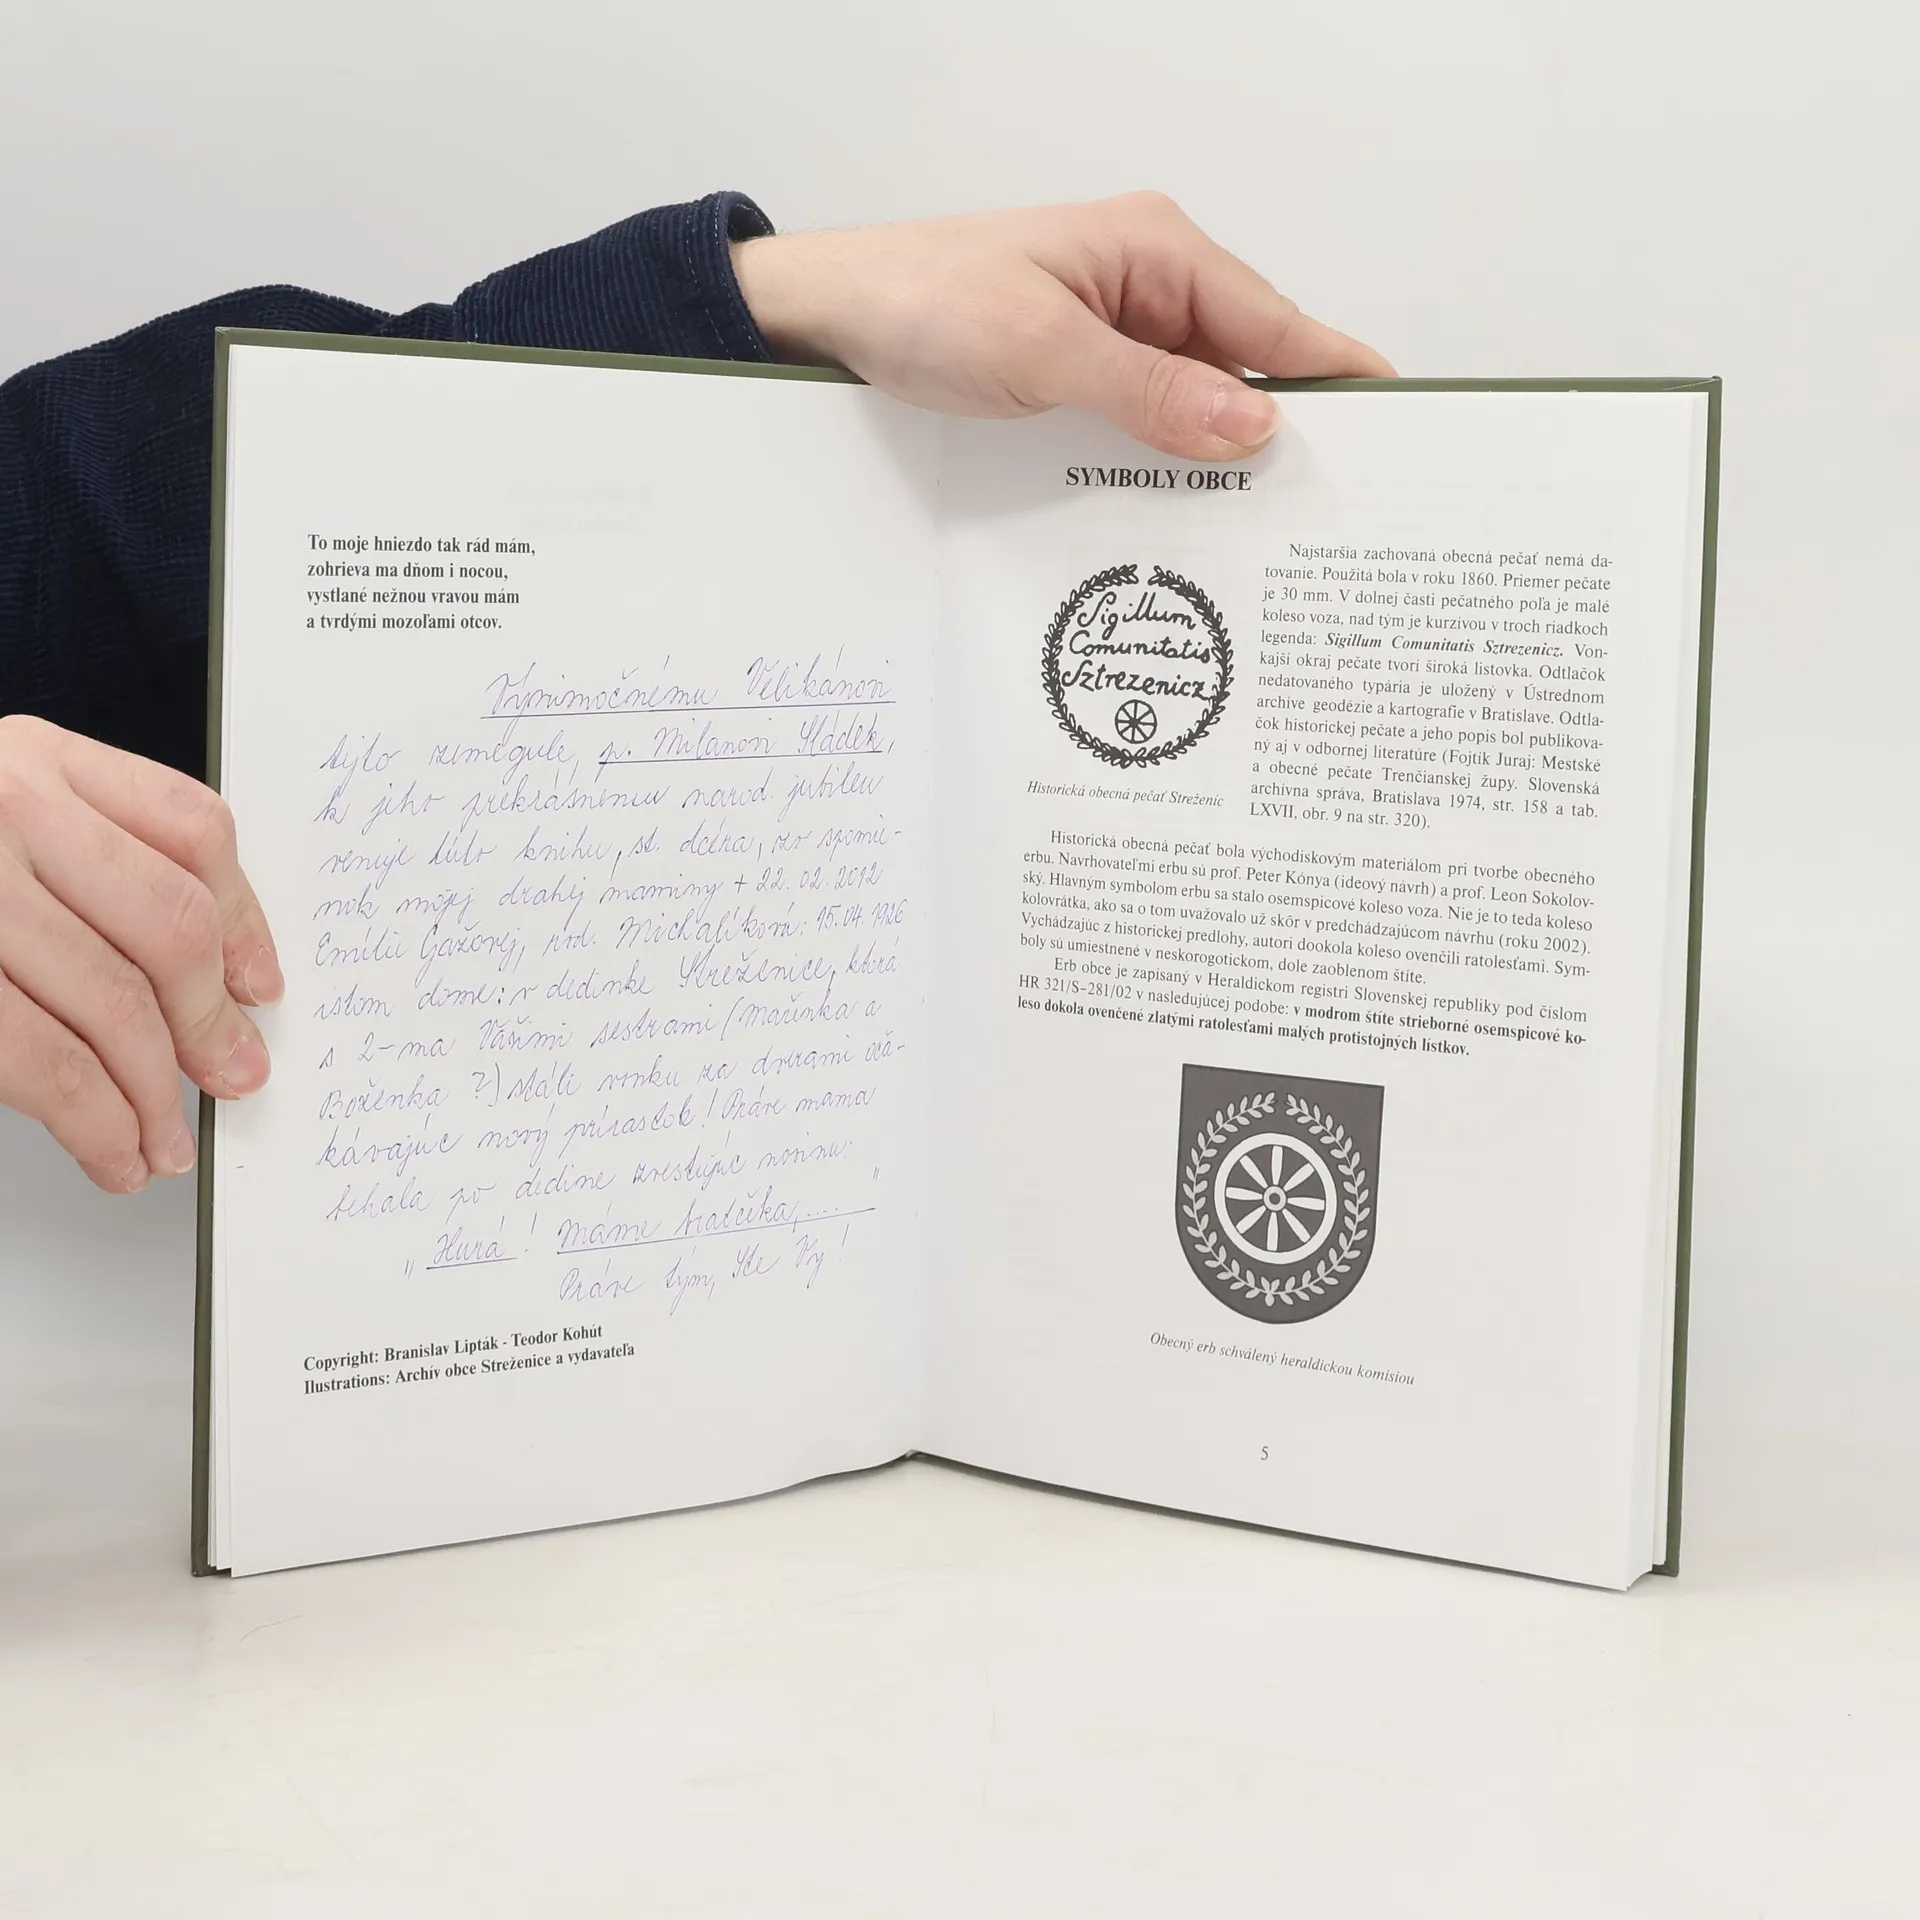 To moje hniezdo tak rád mám,
zohrieva ma dňom i nocou,
vystlané nežnou vravou mám
a tvrdými mozoľami otcov.
Výnimočnému Velikánovi
tejto zemegule, p. Milanovi Sládek,
k jeho prekrásnemu narod. jubileu
venuje túto knihu, st. dcéra, zo spomie-
nok mojej drahej maminy + 22. 02. 2012
Emílii Gažovej, rod. Michalíková: 15.04. 1926
istom dome: v dedinke Streženice, ktorá
s 2-ma Vašimi sestrami (Marinka a
Boženka ?) stáli vonku za dverami oča-
kávajúc nový prírastok! Práve mama
behala po dedine zvestujúc novinu:
„Hurá! Máme bratčeka,...."
Práve tým, Ste Vy!
Copyright: Branislav Lipták - Teodor Kohút
Ilustrations: Archív obce Streženice a vydavateľa
SYMBOLY OBCE
Sigillum
Comunitatis
Sztrezenicz
Historická obecná pečať Streženíc
Najstaršia zachovaná obecná pečať nemá da-
tovanie. Použitá bola v roku 1860. Priemer pečate
je 30 mm. V dolnej časti pečatného poľa je malé
koleso voza, nad tým je kurzívou v troch riadkoch
legenda: Sigillum Comunitatis Sztrezenicz. Von-
kajší okraj pečate tvorí široká listovka. Odtlačok
nedatovaného typária je uložený v Ústrednom
archíve geodézie a kartografie v Bratislave. Odtla-
čok historickej pečate a jeho popis bol publikova-
ný aj v odbornej literatúre (Fojtík Juraj: Mestské
a obecné pečate Trenčianskej župy. Slovenská
archívna správa, Bratislava 1974, str. 158 a tab.
LXVII, obr. 9 na str. 320).
Historická obecná pečať bola východiskovým materiálom pri tvorbe obecného
erbu. Navrhovateľmi erbu sú prof. Peter Kónya (ideový návrh) a prof. Leon Sokolov-
ský. Hlavným symbolom erbu sa stalo osemspicové koleso voza. Nie je to teda koleso
kolovrátka, ako sa o tom uvažovalo už skôr v predchádzajúcom návrhu (roku 2002).
Vychádzajúc z historickej predlohy, autori dookola koleso ovenčili ratolesťami. Sym-
boly sú umiestnené v neskorogotickom, dole zaoblenom štíte.
Erb obce je zapísaný v Heraldickom registri Slovenskej republiky pod číslom
HR 321/S-281/02 v nasledujúcej podobe: v modrom štíte strieborné osemspicové ko-
leso dokola ovenčené zlatými ratolesťami malých protistojných lístkov.
Obecný erb schválený heraldickou komisiou
5